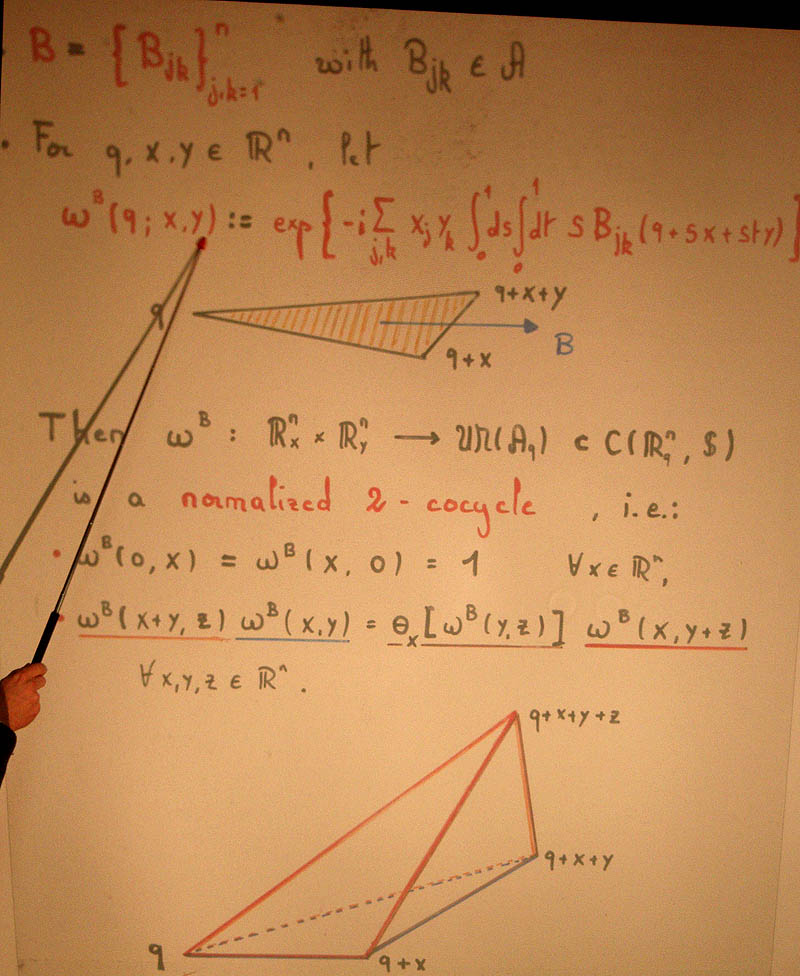 B = {B_jk}^n_{j,k=1} with B_jk ∈ A
• For q, x, y ∈ ℝⁿ, let
ω^B(q; x, y) := exp{-i ∑_{j,k} x_j y_k ∫_0^1 ds ∫_0^1 dt s B_jk(q + sx + sty)}
q
q+x+y
B
q+x
Then ω^B : ℝⁿ_x × ℝⁿ_y ⟶ 𝒰𝔐(A_q) ⊂ C(ℝⁿ_q, 𝕊)
is a normalized 2-cocycle, i.e.:
• ω^B(0, x) = ω^B(x, 0) = 1 ∀x ∈ ℝⁿ,
• ω^B(x+y, z) ω^B(x, y) = θ_x[ω^B(y, z)] ω^B(x, y+z)
∀x, y, z ∈ ℝⁿ.
q+x+y+z
q+x+y
q
q+x